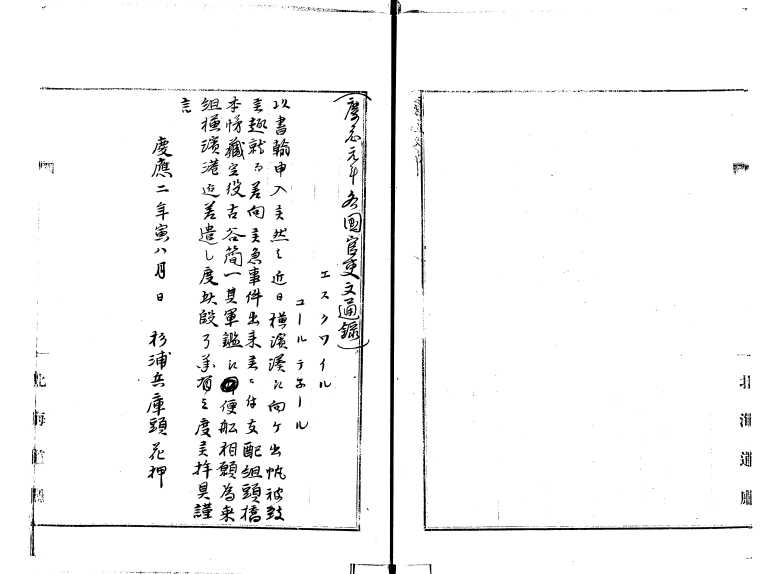 (慶応元年各国官吏文通録)
エスクワイル
コールテネール
以書翰申入候然ハ近日横濱湊ヘ向ケ出帆被致
候趣就而ハ差向候急事件出来候ニ付支配組頭橋
本悌蔵定役古谷簡一其軍鑑ヘ便船相願為乗
組横濱港迄差遣し度此段了承有之度候拝具謹
言
慶應二年寅八月日 杉浦兵庫頭花押
北海道廳
北海道廳